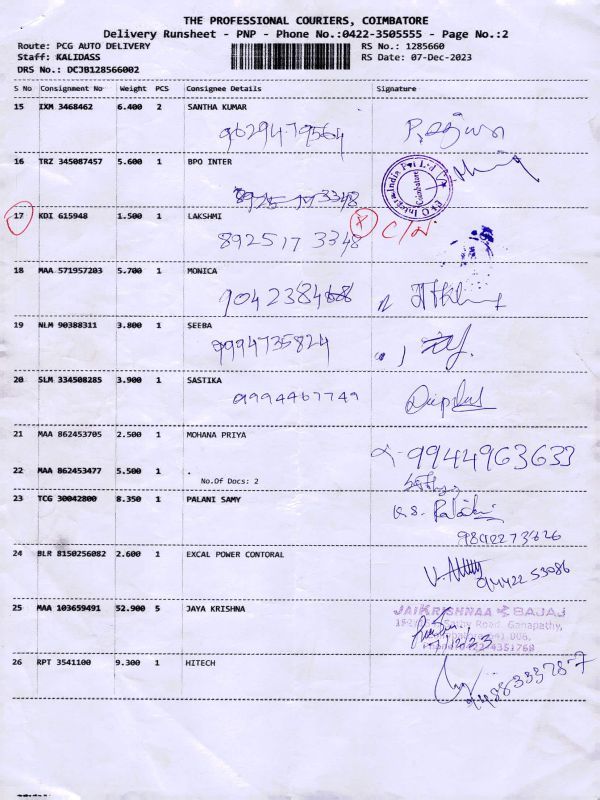 THE PROFESSIONAL COURIERS, COIMBATORE
Delivery Runsheet - PNP - Phone No.:0422-3505555 - Page No.:2
Route: PCG AUTO DELIVERY
RS No.: 1285660
Staff: KALIDASS
RS Date: 07-Dec-2023
DRS No.: DCJB128566002
S No Consignment No Weight PCS Consignee Details Signature
15 IXM 3468462 6.400 2 SANTHA KUMAR
9629479564
16 TRZ 345087457 5.600 1 BPO INTER
Coimbatore
17 KDI 615948 1.500 1 LAKSHMI
8925173348
18 MAA 571957203 5.700 1 MONICA
19 NLM 90388311 3.800 1 SEEBA
9994735824
20 SLM 334508285 3.900 1 SASTIKA
9994467749
21 MAA 862453705 2.500 1 MOHANA PRIYA
9944963633
22 MAA 862453477 5.500 1 .
No.Of Docs: 2
23 TCG 30042800 8.350 1 PALANI SAMY
9842273626
24 BLR 8150256082 2.600 1 EXCAL POWER CONTORAL
9442253086
25 MAA 103659491 52.900 5 JAYA KRISHNA
JAIKRISHNAA BAJAJ
Road, Ganapathy,
26 RPT 3541100 9.300 1 HITECH